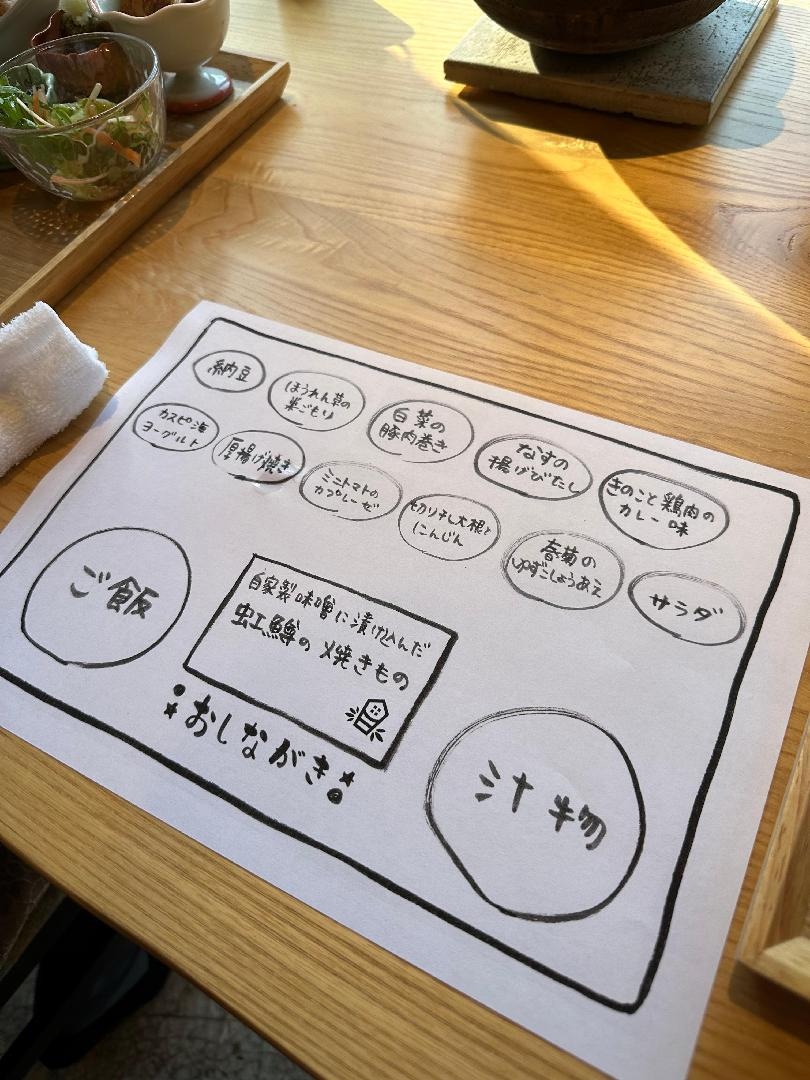 納豆
ほうれん草の
巣ごもり
白菜の
豚肉巻き
なすの
揚げびたし
きのこと鶏肉の
カレー味
カスピ海
ヨーグルト
厚揚げ焼き
ミニトマトの
カプレーゼ
切り干し大根と
にんじん
春菊の
ゆずこしょうあえ
サラダ
ご飯
自家製味噌に漬け込んだ
虹鱒の焼きもの
おしながき
汁物